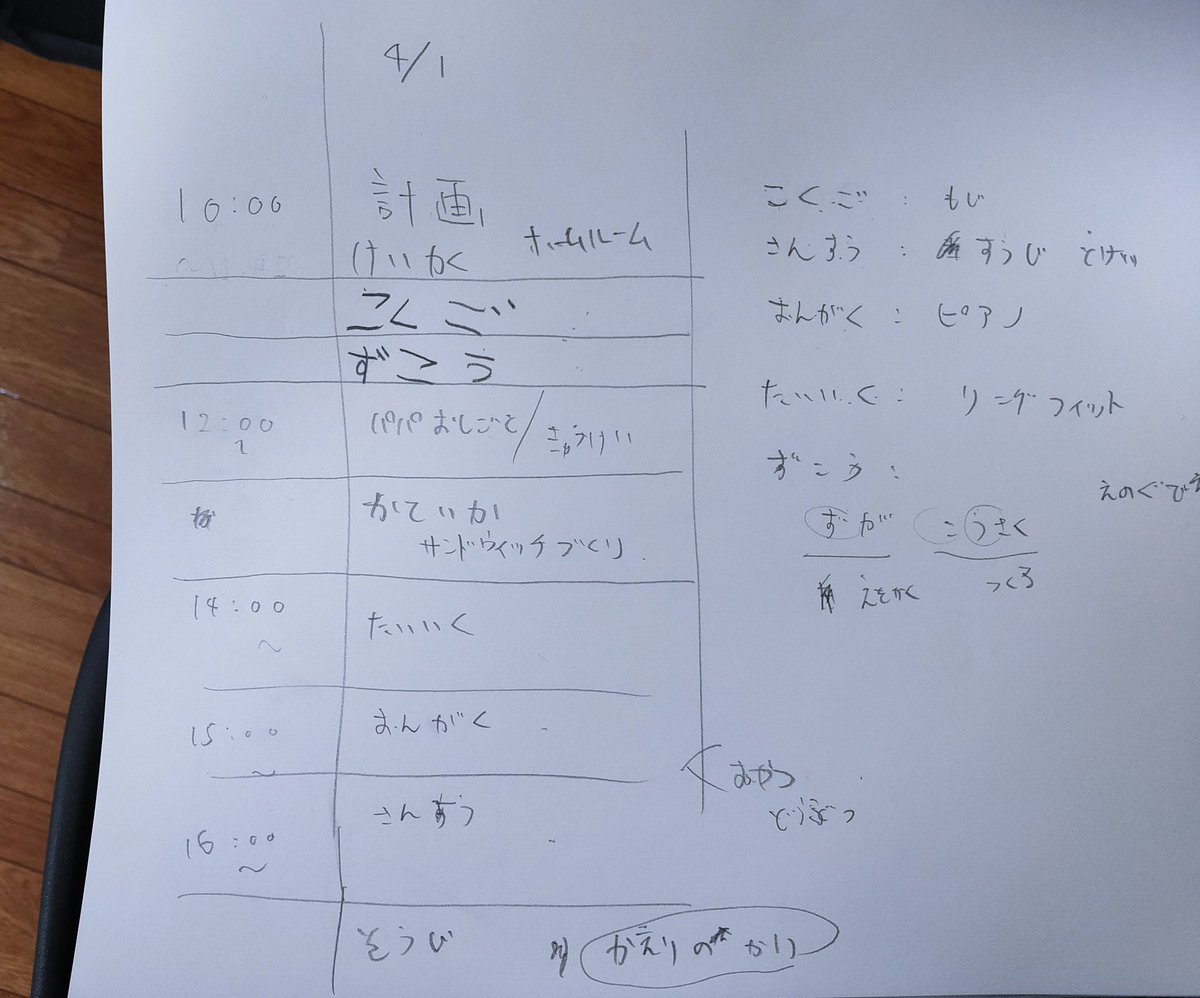 4/1
10:00 計画
けいかく ホームルーム
こくご
ずこう
12:00 パパおしごと/きゅうけい
〜
かていか
サンドウィッチづくり
14:00 たいいく
〜
15:00 おんがく
〜
さんすう
16:00
〜
そうじ かえりの かい
こくご : もじ
さんすう : すうじ とけい
おんがく : ピアノ
たいいく : リングフィット
ずこう :
えのぐで
ずが こうさく
えをかく つくる
おやつ
どうぶつ